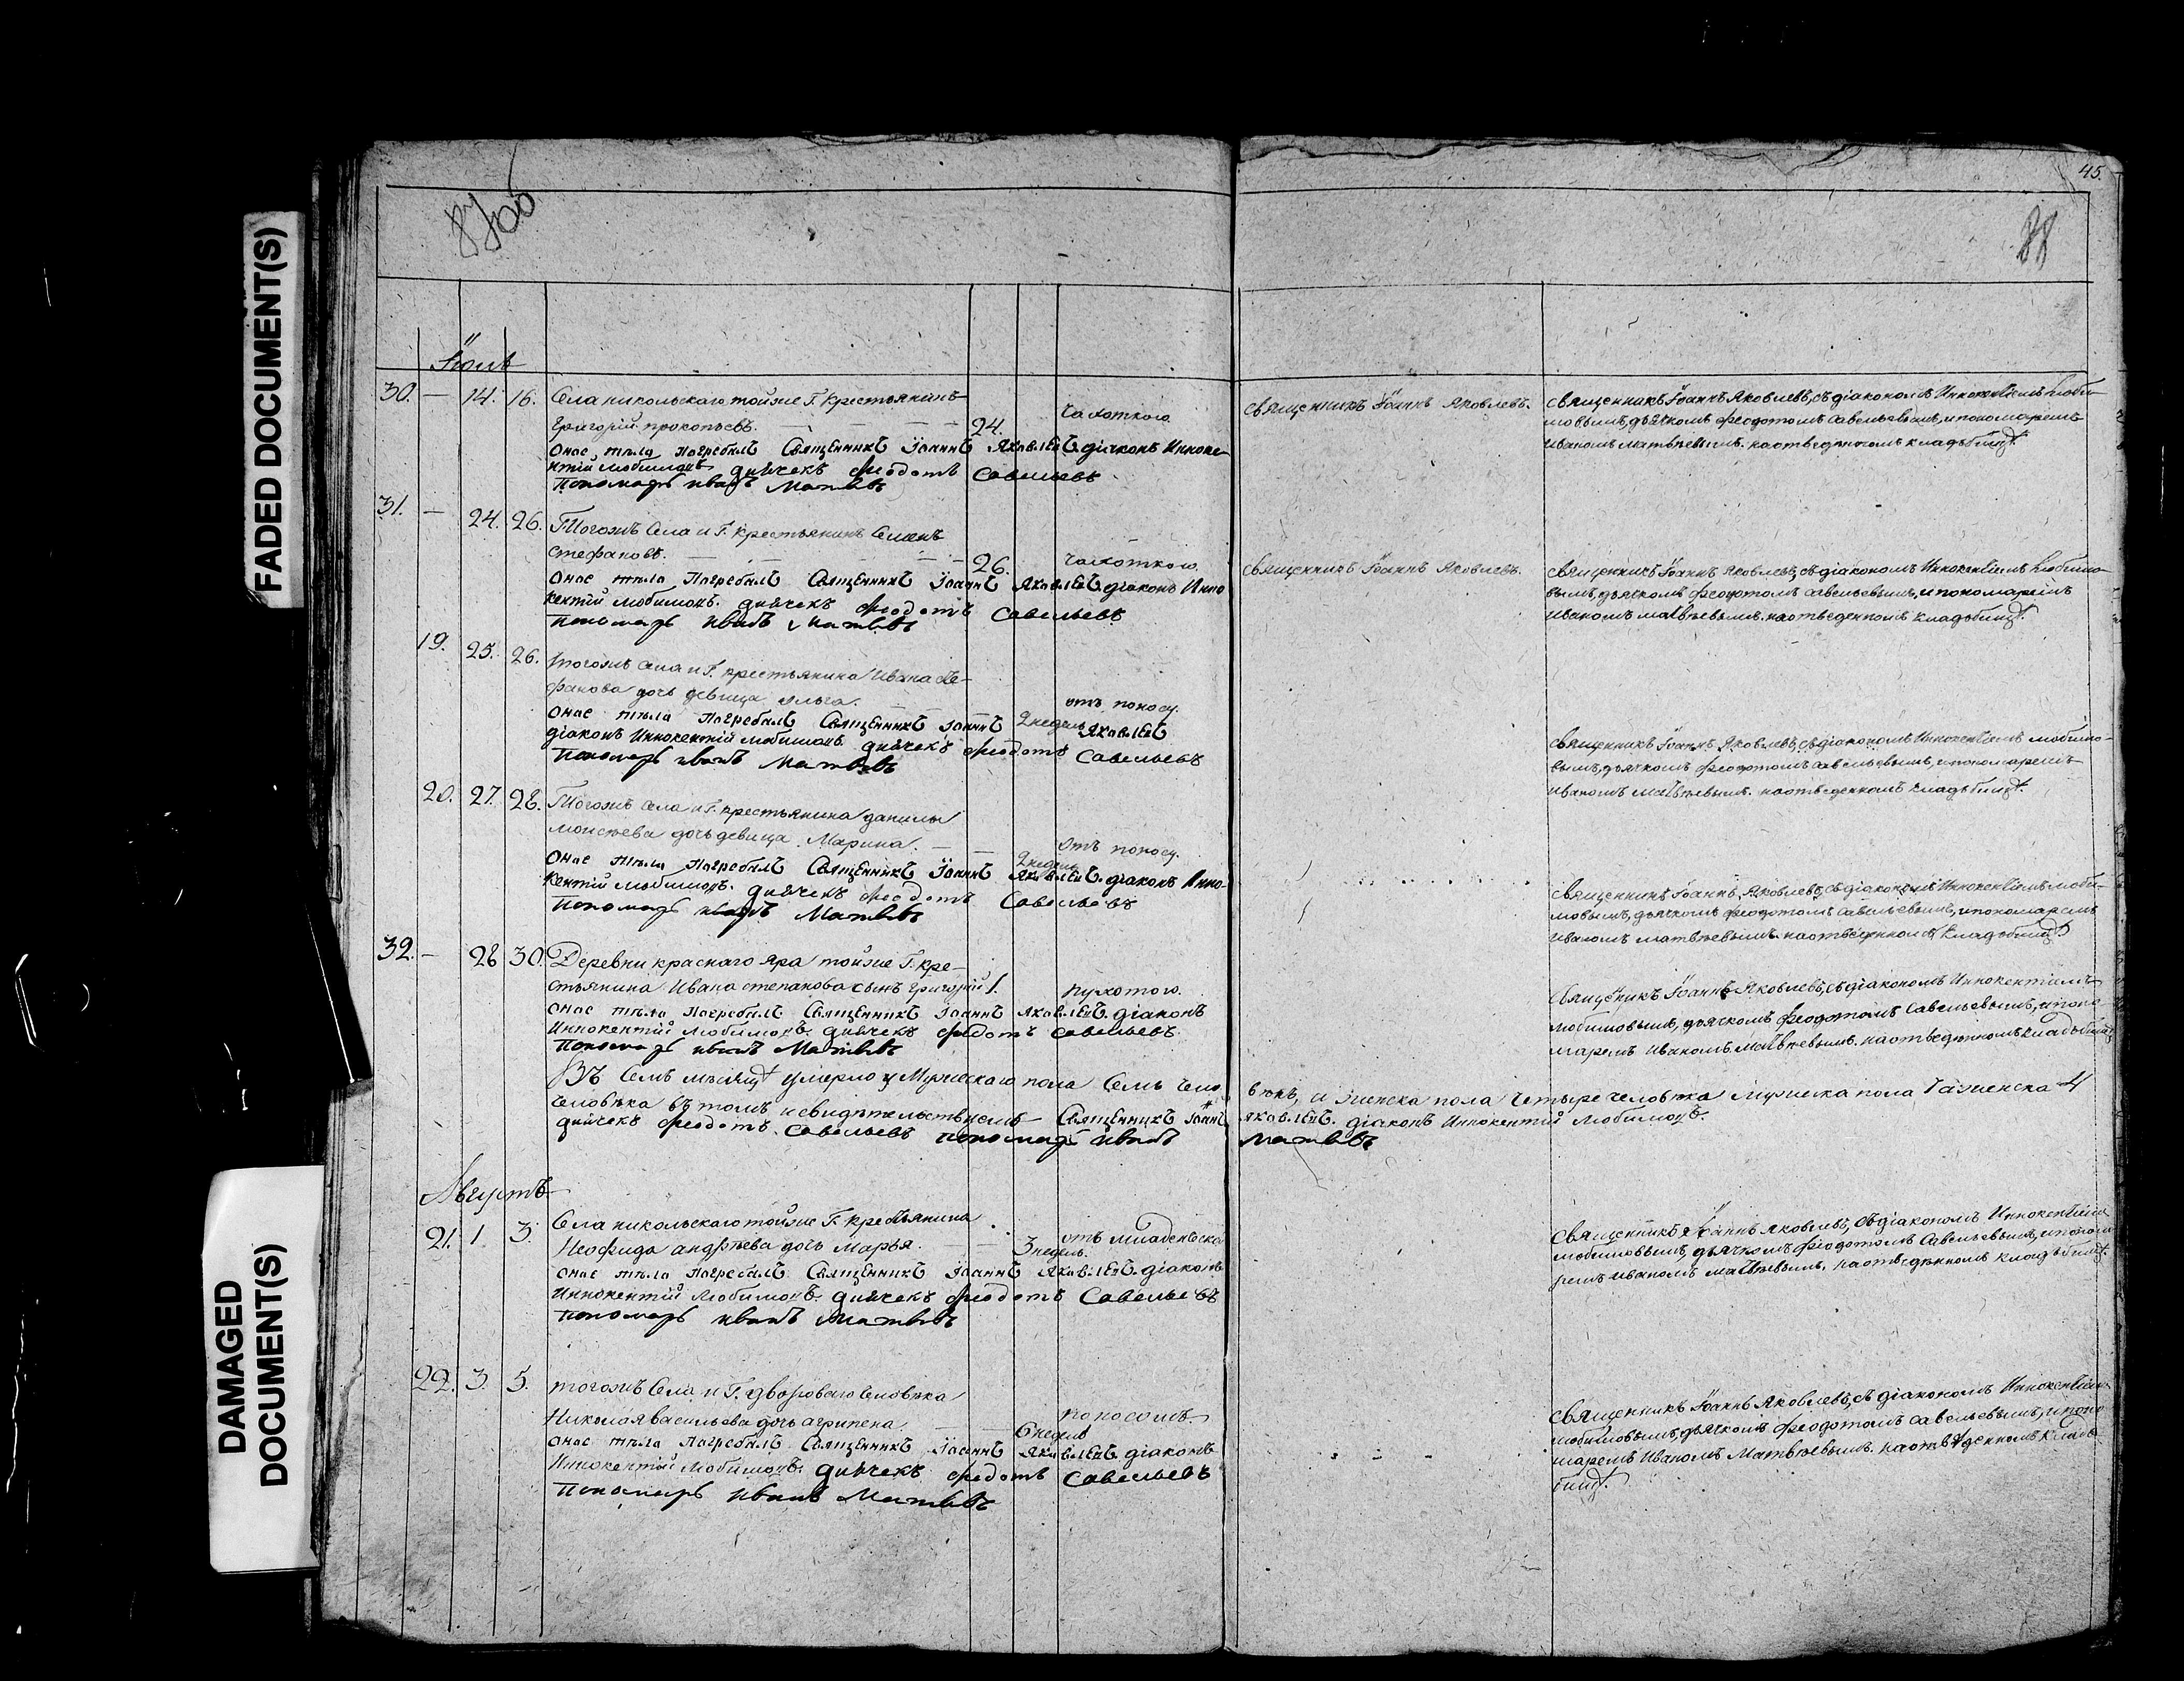 FADED DOCUMENT(S)
DAMAGED
DOCUMENT(S)
87об
45.
88
Іюль
30. — 14. 16. Села никольскаго тойже Г. крестьянинъ
Григорій прокопьевъ. — — — — 24. Чахоткою.
оное тѣло Погребалъ Священникъ Іоаннъ Яковлевъ. діаконъ Инноке-
нтій Любимовъ. дьячекъ Феодотъ Савельевъ
Пономарь иванъ Матвѣевъ
священникъ Іоаннъ Яковлевъ.
священникъ Іоаннъ Яковлевъ, съ діакономъ Иннокентіемъ Люби-
мовымъ, дьячкомъ феодотомъ савельевымъ, и пономаремъ
иваномъ матвѣевымъ. на отведенномъ кладбищѣ.
31. — 24. 26. Тогожъ Села и Г. крестьянинъ Семенъ
стефановъ. — — — 26. чахоткою.
оное тѣло Погребалъ Священникъ Іоаннъ Яковлевъ. діаконъ Инно
кентій Любимовъ. дьячекъ Феодотъ Савельевъ
пономарь Иванъ Матвѣевъ
священникъ Іоаннъ Яковлевъ.
священникъ Іоаннъ Яковлевъ, съ діакономъ Иннокентіемъ Любимо-
вымъ, дьячкомъ феодотомъ савельевымъ, и пономаремъ
иваномъ матвѣевымъ. на отведенномъ кладбищѣ.
19. 25. 26. тогожъ села и Г. крестьянина Ивана Сте-
фанова дочь девица ольга. — — 2 недель отъ поносу.
оное тѣло Погребалъ Священникъ Іоаннъ Яковлевъ
діаконъ Иннокентій Любимовъ. дьячекъ Феодотъ Савельевъ
Пономарь иванъ Матвѣевъ
священникъ Іоаннъ Яковлевъ, съ діакономъ Иннокентіемъ любимо-
вымъ, дьячкомъ феодотомъ савельевымъ, и пономаремъ
иваномъ матвѣевымъ. на отведенномъ кладбищѣ.
20. 27. 28. Тогожъ села и Г. крестьянина данилы
моисеева дочь девица Марина. — — 2 недель отъ поносу.
оное тѣло Погребалъ Священникъ Іоаннъ Яковлевъ. діаконъ Инно-
кентій Любимовъ. дьячекъ Феодотъ Савельевъ
Пономарь иванъ Матвѣевъ
священникъ Іоаннъ Яковлевъ, съ діакономъ Иннокентіемъ люби-
мовымъ, дьячкомъ феодотомъ савельевымъ, и пономаремъ
иваномъ матвѣевымъ. на отведенномъ кладбищѣ
32. — 28 30. Деревни краснаго яра тойже Г. кре-
стьянина Ивана степанова сынъ григорій 1. пухотою.
оное тѣло Погребалъ Священникъ Іоаннъ Яковлевъ. діаконъ
Иннокентій Любимовъ. дьячекъ Федотъ Савельевъ.
Пономарь иванъ Матвѣевъ
Священикъ Іоаннъ Яковлевъ, съ діакономъ Иннокентіемъ
любимовымъ, дьячкомъ феодотомъ савельевымъ, и поно
маремъ иваномъ матвѣевымъ. на отведенномъ кладбищѣ
Въ Семъ мѣсяцѣ умерло Мужескаго пола Семь чело вѣкъ, и женска пола четыре человѣка мужеска пола 7 а женска 4
человѣка въ томъ и свидѣтельствуемъ Священникъ Іоаннъ Яковлевъ. діаконъ Иннокентій Любимовъ.
дьячекъ Феодотъ. Савельевъ пономарь иванъ Матвѣевъ
Августъ
21. 1. 3. Села никольскаго тойже Г. крестьянина
Неофида андрѣева дочь марья. — 3 недель. отъ младенѣска
оное тѣло Погребалъ Священникъ Іоаннъ Яковлевъ. діаконъ
Иннокентій Любимовъ. дьячекъ Феодотъ Савельевъ
Пономарь иванъ Матвѣевъ
Священникъ Іоаннъ Яковлевъ, съ діакономъ Иннокентіемъ
любимовымъ, дьячкомъ феодотомъ Савельевымъ, и понома
ремъ иваномъ матвѣевымъ. на отведенномъ кладбищѣ.
22. 3. 5. тогожъ Села и Г. двороваго человѣка
Николая васильева дочь агрипена — 6 недель поносомъ.
оное тѣло Погребалъ Священникъ Іоаннъ Яковлевъ діаконъ
Иннокентій Любимовъ. дьячекъ Федотъ Савельевъ
Пономарь Иванъ Матвѣевъ
священникъ Іоаннъ Яковлевъ, съ діакономъ Иннокентіемъ
любимовымъ, дьячкомъ феодотомъ савельевымъ, и поно
маремъ Иваномъ Матвѣевымъ. на отведенномъ клад
бищѣ.